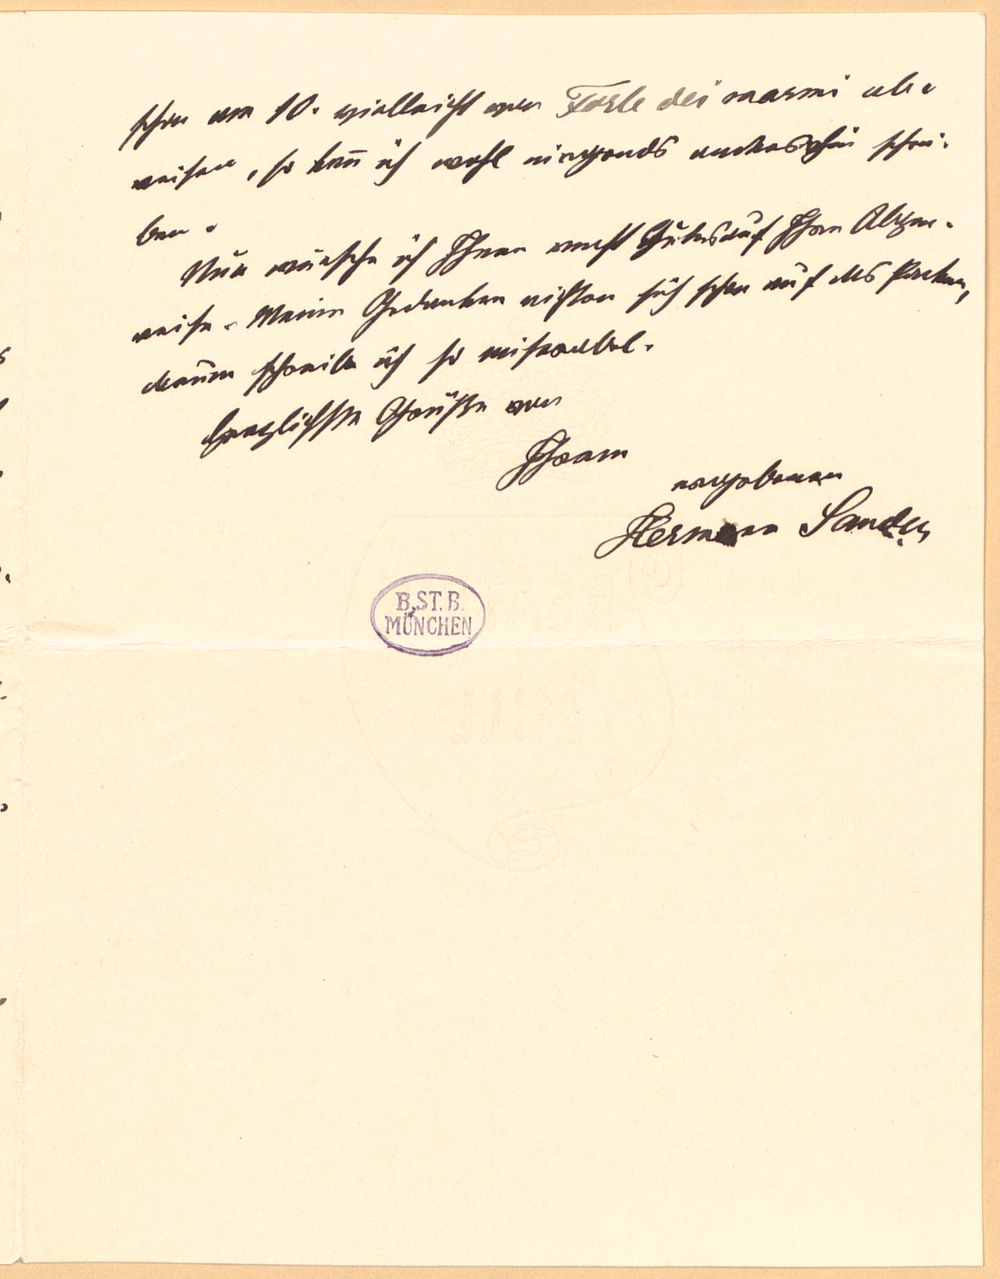 schon am 10. vielleicht von Forte dei marmi ab-
reisen, so kann ich wohl nirgends anderswohin schrei-
ben.
Nun wünsche ich Ihnen recht Gutes auf Ihrer Alpen-
reise. Meine Gedanken richten sich schon auf das Packen,
darum schreibe ich so miserabel.
Herzlichste Grüße von
Ihrem
ergebenen
Hermann Sander
B.ST.B.
MÜNCHEN